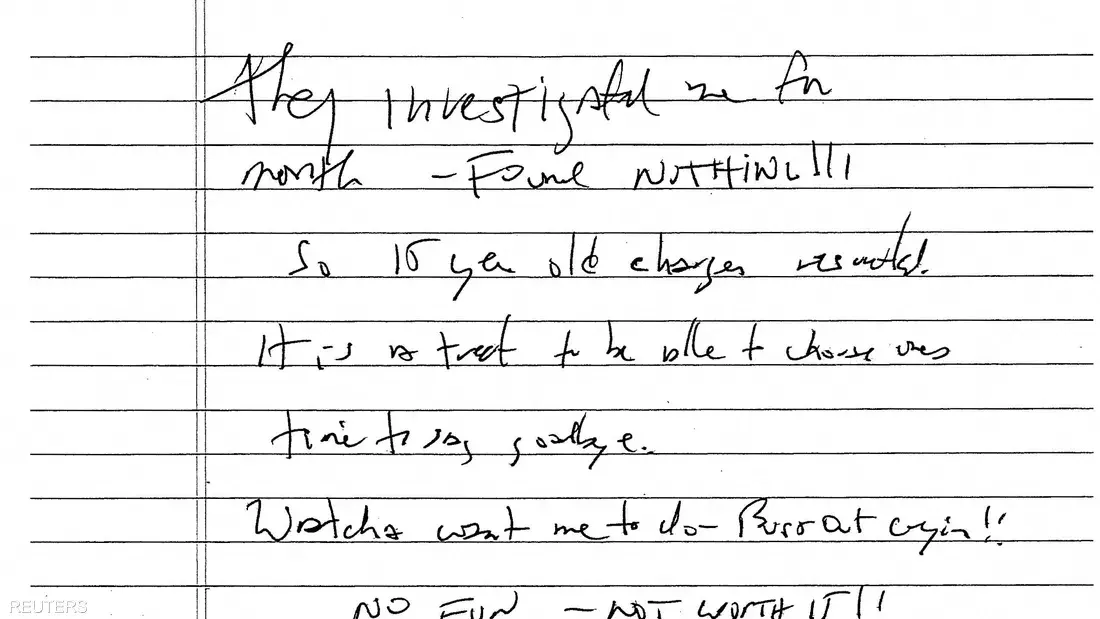 They investigated me for
month - Found NOTHING!!!
So 15 year old charges resulted.
It is a treat to be able to choose ones
time to say goodbye.
Watcha want me to do - Burst out cryin!!
NO FUN - NOT WORTH IT!!
REUTERS